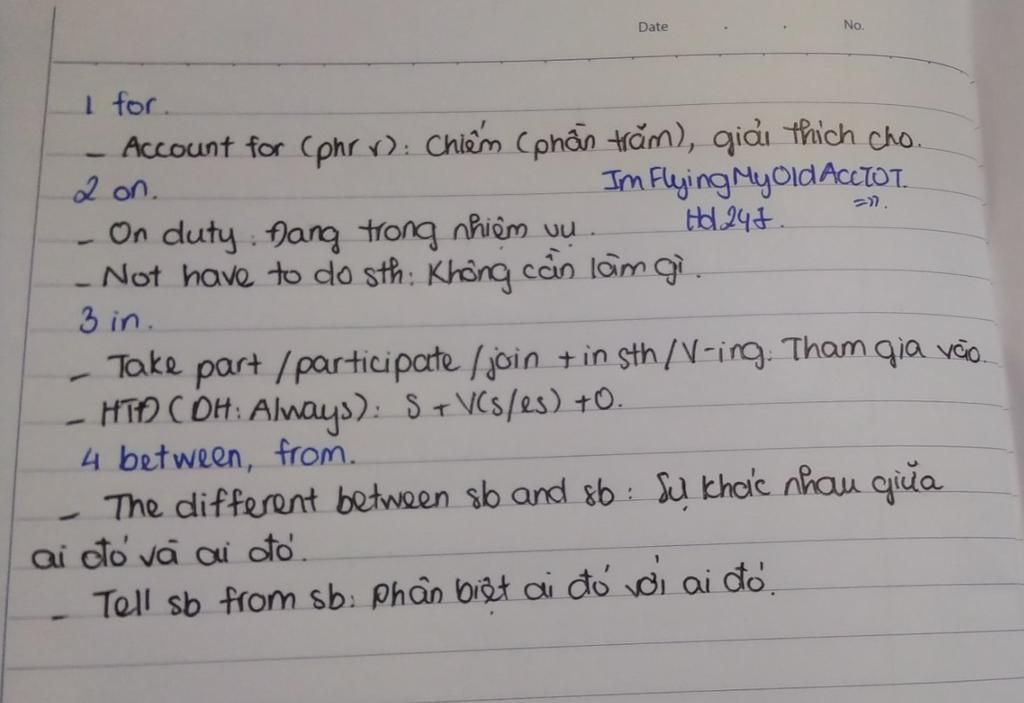 Date . . No.
1 for.
- Account for (phr v): Chiếm (phần trăm), giải thích cho.
2 on. ImFlyingMyOldAccTOT.
- On duty: Đang trong nhiệm vụ. Hd247. =)).
- Not have to do sth: Không cần làm gì.
3 in.
- Take part/participate/join + in sth/V-ing: Tham gia vào.
- HTĐ (DH: Always): S + V(s/es) + O.
4 between, from.
- The different between sb and sb: Sự khác nhau giữa
ai đó và ai đó.
- Tell sb from sb: phân biệt ai đó với ai đó.